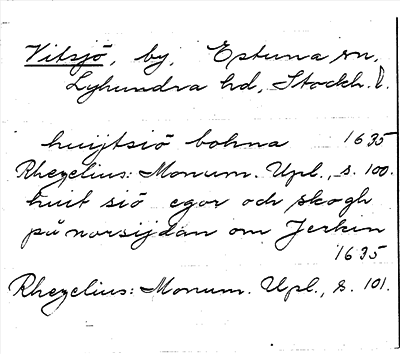 Vitsjö, by, Estuna sn,
Lyhundra hd, Stockh. l.
huijtsiö bohna 1635
Rhezelius: Monum. Upl., s. 100.
huit siö egor och skogh
på norsijdan om Jerkin
1635
Rhezelius: Monum. Upl., s. 101.